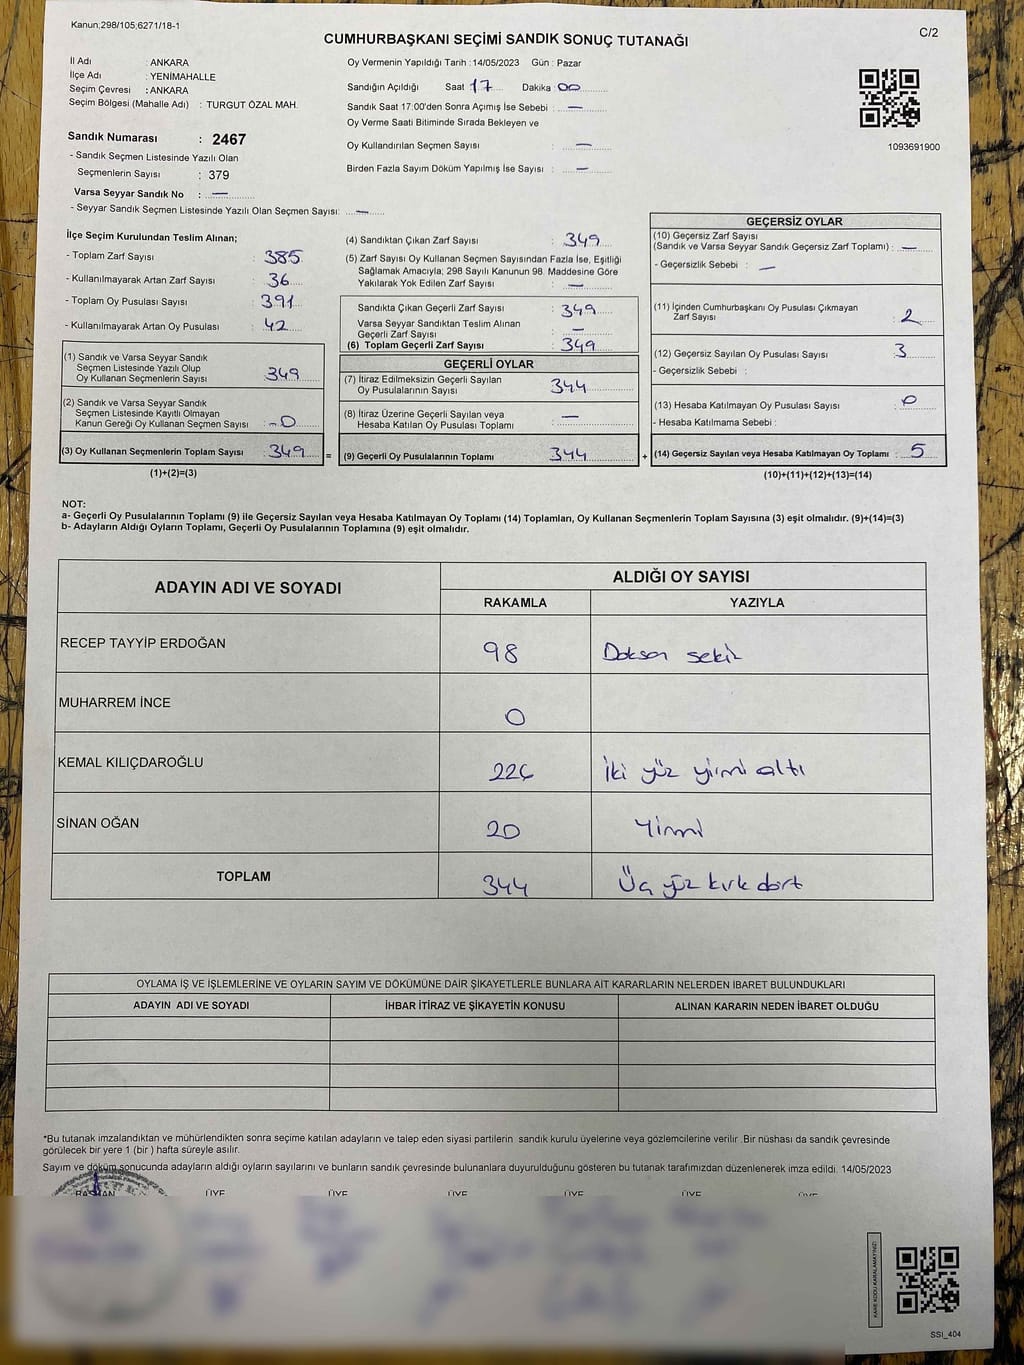 Kanun;298/105;6271/18-1
C/2
CUMHURBAŞKANI SEÇİMİ SANDIK SONUÇ TUTANAĞI
İl Adı : ANKARA
İlçe Adı : YENİMAHALLE
Seçim Çevresi : ANKARA
Seçim Bölgesi (Mahalle Adı) : TURGUT ÖZAL MAH.
Sandık Numarası : 2467
- Sandık Seçmen Listesinde Yazılı Olan
Seçmenlerin Sayısı : 379
Varsa Seyyar Sandık No : —
- Seyyar Sandık Seçmen Listesinde Yazılı Olan Seçmen Sayısı: —
Oy Vermenin Yapıldığı Tarih : 14/05/2023 Gün : Pazar
Sandığın Açıldığı Saat 17 Dakika 00
Sandık Saat 17:00'den Sonra Açımış İse Sebebi : —
Oy Verme Saati Bitiminde Sırada Bekleyen ve
Oy Kullandırılan Seçmen Sayısı : —
Birden Fazla Sayım Döküm Yapılmış İse Sayısı : —
1093691900
İlçe Seçim Kurulundan Teslim Alınan;
- Toplam Zarf Sayısı : 385
- Kullanılmayarak Artan Zarf Sayısı : 36
- Toplam Oy Pusulası Sayısı : 391
- Kullanılmayarak Artan Oy Pusulası : 42
(1) Sandık ve Varsa Seyyar Sandık
Seçmen Listesinde Yazılı Olup
Oy Kullanan Seçmenlerin Sayısı : 349
(2) Sandık ve Varsa Seyyar Sandık
Seçmen Listesinde Kayıtlı Olmayan
Kanun Gereği Oy Kullanan Seçmen Sayısı : 0
(3) Oy Kullanan Seçmenlerin Toplam Sayısı : 349 =
(1)+(2)=(3)
(4) Sandıktan Çıkan Zarf Sayısı : 349
(5) Zarf Sayısı Oy Kullanan Seçmen Sayısından Fazla İse, Eşitliği
Sağlamak Amacıyla; 298 Sayılı Kanunun 98. Maddesine Göre
Yakılarak Yok Edilen Zarf Sayısı : —
Sandıkta Çıkan Geçerli Zarf Sayısı : 349
Varsa Seyyar Sandıktan Teslim Alınan
Geçerli Zarf Sayısı : —
(6) Toplam Geçerli Zarf Sayısı : 349
GEÇERLİ OYLAR
(7) İtiraz Edilmeksizin Geçerli Sayılan
Oy Pusulalarının Sayısı : 344
(8) İtiraz Üzerine Geçerli Sayılan veya
Hesaba Katılan Oy Pusulası Toplamı : —
(9) Geçerli Oy Pusulalarının Toplamı : 344 +
GEÇERSİZ OYLAR
(10) Geçersiz Zarf Sayısı
(Sandık ve Varsa Seyyar Sandık Geçersiz Zarf Toplamı) : —
- Geçersizlik Sebebi : —
(11) İçinden Cumhurbaşkanı Oy Pusulası Çıkmayan
Zarf Sayısı : 2
(12) Geçersiz Sayılan Oy Pusulası Sayısı : 3
- Geçersizlik Sebebi :
(13) Hesaba Katılmayan Oy Pusulası Sayısı : 0
- Hesaba Katılmama Sebebi :
(14) Geçersiz Sayılan veya Hesaba Katılmayan Oy Toplamı : 5
(10)+(11)+(12)+(13)=(14)
NOT:
a- Geçerli Oy Pusulalarının Toplamı (9) ile Geçersiz Sayılan veya Hesaba Katılmayan Oy Toplamı (14) Toplamları, Oy Kullanan Seçmenlerin Toplam Sayısına (3) eşit olmalıdır. (9)+(14)=(3)
b- Adayların Aldığı Oyların Toplamı, Geçerli Oy Pusulalarının Toplamına (9) eşit olmalıdır.
ADAYIN ADI VE SOYADI ALDIĞI OY SAYISI
RAKAMLA YAZIYLA
RECEP TAYYİP ERDOĞAN 98 Doksan sekiz
MUHARREM İNCE 0
KEMAL KILIÇDAROĞLU 226 İki yüz yirmi altı
SİNAN OĞAN 20 Yirmi
TOPLAM 344 Üç yüz kırk dört
OYLAMA İŞ VE İŞLEMLERİNE VE OYLARIN SAYIM VE DÖKÜMÜNE DAİR ŞİKAYETLERLE BUNLARA AİT KARARLARIN NELERDEN İBARET BULUNDUKLARI
ADAYIN ADI VE SOYADI İHBAR İTİRAZ VE ŞİKAYETİN KONUSU ALINAN KARARIN NEDEN İBARET OLDUĞU
*Bu tutanak imzalandıktan ve mühürlendikten sonra seçime katılan adayların ve talep eden siyasi partilerin sandık kurulu üyelerine veya gözlemcilerine verilir .Bir nüshası da sandık çevresinde
görülecek bir yere 1 (bir ) hafta süreyle asılır.
Sayım ve döküm sonucunda adayların aldığı oyların sayılarını ve bunların sandık çevresinde bulunanlara duyurulduğunu gösteren bu tutanak tarafımızdan düzenlenerek imza edildi. 14/05/2023
BAŞKAN ÜYE ÜYE ÜYE ÜYE ÜYE ÜYE
KARE KODU KARALAMAYINIZ!
SSİ_404